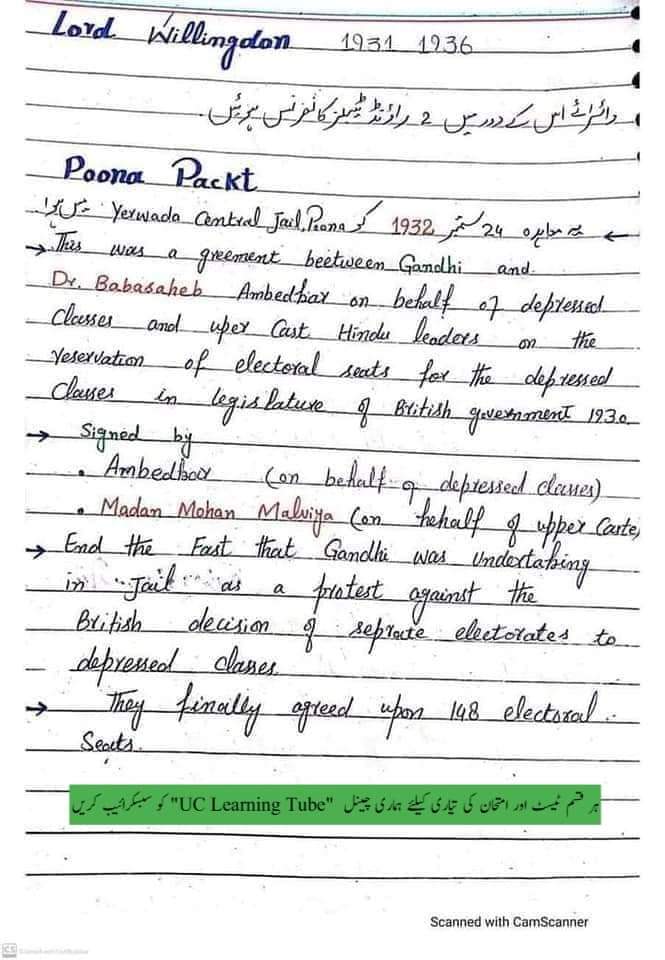 Lord Willingdon 1931 1936
وائسرائے اس کے دور میں 2 راؤنڈ ٹیبل کانفرنس ہوئیں۔
Poona Packt
← یہ معاہدہ 24 ستمبر 1932 کو Yerwada Central Jail, Poona میں ہوا
→ This was a greement beetween Gandhi and
Dr. Babasaheb Ambedkar on behalf of depressed
Classes and uper Cast Hindu leaders on the
reservation of electoral seats for the depressed
Classes in legislature of British government 1930
→ Signed by
• Ambedkar (on behalf of depressed classes)
• Madan Mohan Malviya (on behalf of upper Caste)
→ End the Fast that Gandhi was undertaking
in Jail as a protest against the
British decision of seprate electorates to
depressed classes
→ They finally agreed upon 148 electoral
Seats.
ہر قسم ٹیسٹ اور امتحان کی تیاری کیلئے ہماری چینل "UC Learning Tube" کو سبسکرائیب کریں
Scanned with CamScanner
CS Scanned with CamScanner